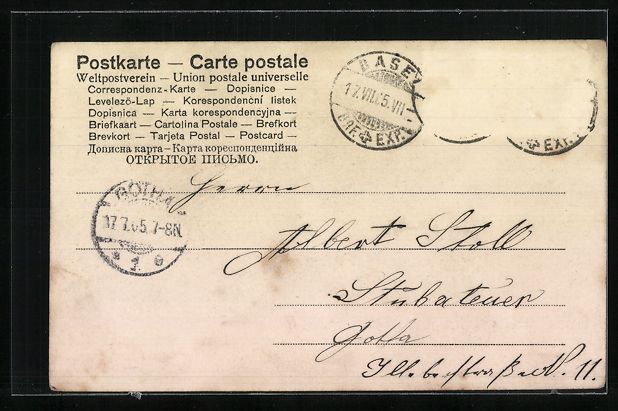 Postkarte — Carte postale
Weltpostverein — Union postale universelle
Correspondenz-Karte — Dopisnice —
Levelező-Lap — Korespondenční listek
Dopisnica — Karta korespondencyjna —
Briefkaart — Cartolina Postale — Brefkort
Brevkort — Tarjeta Postal — Postcard —
Дописна карта — Карта кореспонденційна
ОТКРЫТОЕ ПИСЬМО.
BASEL
17.VII.05.VII-
BRF. EXP.
EXP.
GOTHA
17.7.05.7-8N.
* 1. e
Herrn
Albert Stoll
Gotha
N. 11.